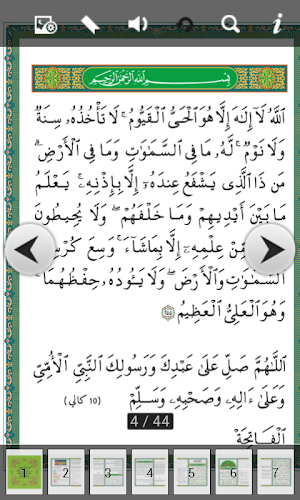 بِسْمِ ٱللَّهِ ٱلرَّحْمَٰنِ ٱلرَّحِيمِ
ٱللَّهُ لَآ إِلَٰهَ إِلَّا هُوَ ٱلْحَىُّ ٱلْقَيُّومُ ۚ لَا تَأْخُذُهُۥ سِنَةٌ
وَلَا نَوْمٌ ۚ لَّهُۥ مَا فِى ٱلسَّمَٰوَٰتِ وَمَا فِى ٱلْأَرْضِ ۗ
مَن ذَا ٱلَّذِى يَشْفَعُ عِندَهُۥٓ إِلَّا بِإِذْنِهِۦ ۚ يَعْلَمُ
مَا بَيْنَ أَيْدِيهِمْ وَمَا خَلْفَهُمْ ۖ وَلَا يُحِيطُونَ
مِّنْ عِلْمِهِۦٓ إِلَّا بِمَا شَآءَ ۚ وَسِعَ كُرْسِ
ٱلسَّمَٰوَٰتِ وَٱلْأَرْضَ ۖ وَلَا يَـُٔودُهُۥ حِفْظُهُمَا ۚ
وَهُوَ ٱلْعَلِىُّ ٱلْعَظِيمُ ٢٥٥
ٱللَّهُمَّ صَلِّ عَلَىٰ عَبْدِكَ وَرَسُولِكَ ٱلنَّبِيِّ ٱلْأُمِّيِّ
وَعَلَىٰ ءَالِهِۦ وَصَحْبِهِۦ وَسَلِّمْ (10 كالي)
4 / 44
ٱلْفَاتِحَةْ
1 2 3 4 5 6 7